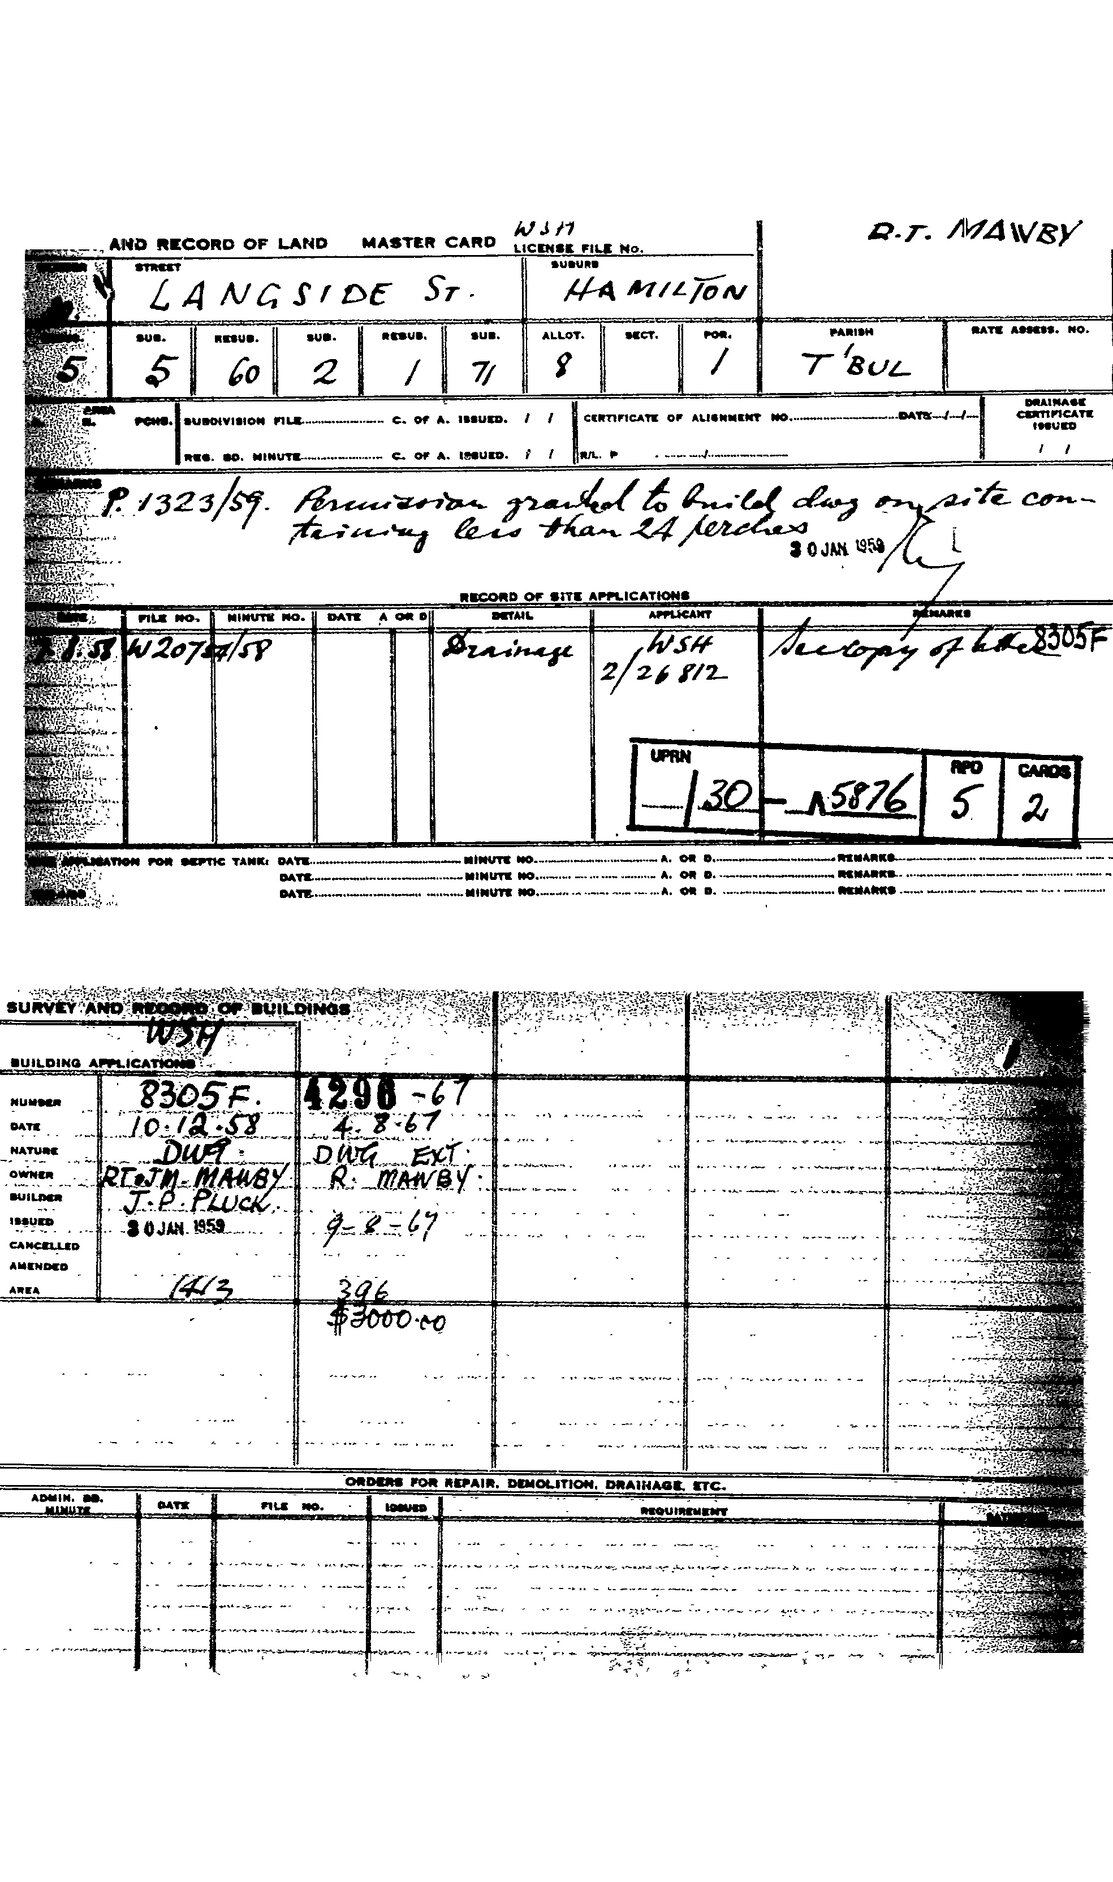 WSH
R.T. MAWBY
AND RECORD OF LAND MASTER CARD LICENSE FILE No.
STREET SUBURB
LANGSIDE ST. HAMILTON
SUB. RESUB. SUB. RESUB. SUB. ALLOT. SECT. POR. PARISH RATE ASSESS. NO.
5 5 60 2 1 71 8 1 T'BUL
AREA
R. PCHS. SUBDIVISION FILE C. OF A. ISSUED. / / CERTIFICATE OF ALIGNMENT NO. DATE / / DRAINAGE CERTIFICATE ISSUED
REG. BD. MINUTE C. OF A. ISSUED. / / R/L. P / / /
REMARKS
P. 1323/59. Permission granted to build dwg on site con-
taining less than 24 perches
30 JAN. 1959
RECORD OF SITE APPLICATIONS
DATE FILE NO. MINUTE NO. DATE A OR D DETAIL APPLICANT REMARKS
.8.58 W207 /58 Drainage WSH See copy of letter 8305F
2/26812
UPRN RPD CARDS
/30 - 5876 5 2
APPLICATION FOR SEPTIC TANK: DATE MINUTE NO. A. OR D. REMARKS
DATE MINUTE NO. A. OR D. REMARKS
DATE MINUTE NO. A. OR D. REMARKS
SURVEY AND RECORD OF BUILDINGS
WSH
BUILDING APPLICATIONS
NUMBER 8305F. 4296 -67
DATE 10.12.58 4.8.67
NATURE DWG. DWG EXT.
OWNER RT & JM. MAWBY R. MAWBY.
BUILDER J.P. PLUCK.
ISSUED 30 JAN. 1959 9-8-67
CANCELLED
AMENDED
AREA 1413 396
$3000.00
ORDERS FOR REPAIR, DEMOLITION, DRAINAGE, ETC.
ADMIN. BD. MINUTE DATE FILE NO. ISSUED REQUIREMENT